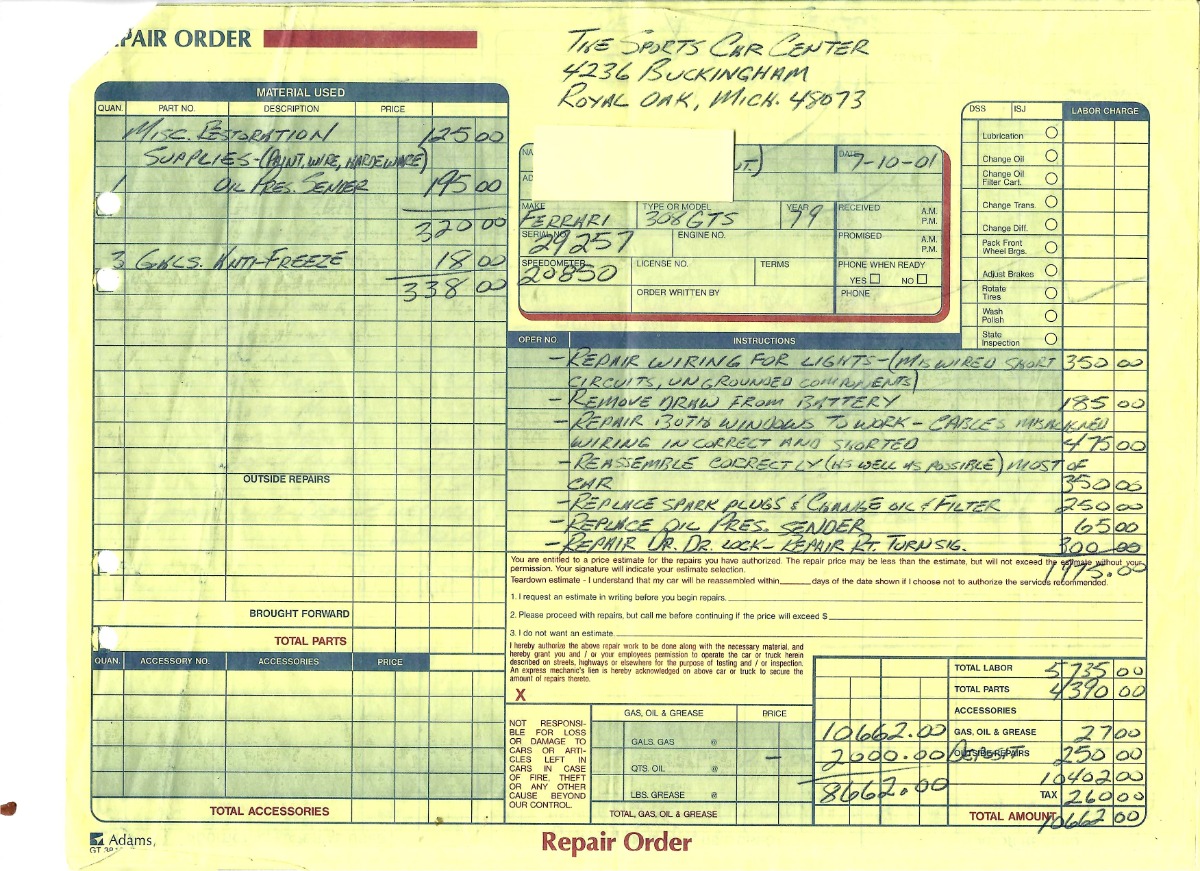 PAIR ORDER
THE SPORTS CAR CENTER
4236 BUCKINGHAM
ROYAL OAK, MICH. 48073
MATERIAL USED
QUAN. PART NO. DESCRIPTION PRICE
MISC. RESTORATION 125 00
SUPPLIES-(PAINT, WIRE, HARDEWARE)
1 OIL PRES. SENIER 195 00
320 00
3 GALS. ANTI-FREEZE 18 00
338 00
OUTSIDE REPAIRS
BROUGHT FORWARD
TOTAL PARTS
QUAN. ACCESSORY NO. ACCESSORIES PRICE
TOTAL ACCESSORIES
Adams
NA
AD
UT.)
DATE 7-10-01
MAKE FERRARI
TYPE OR MODEL 308 GTS
YEAR 79
RECEIVED A.M. P.M.
SERIAL NO. 29257
ENGINE NO.
PROMISED A.M. P.M.
SPEEDOMETER 20850
LICENSE NO.
TERMS
PHONE WHEN READY
YES NO
ORDER WRITTEN BY
PHONE
DSS ISJ LABOR CHARGE
Lubrication
Change Oil
Change Oil Filter Cart.
Change Trans.
Change Diff.
Pack Front Wheel Brgs.
Adjust Brakes
Rotate Tires
Wash Polish
State Inspection
OPER NO. INSTRUCTIONS
- REPAIR WIRING FOR LIGHTS-(MISWIRED SHORT 350 00
CIRCUITS, UNGROUNDED COMPONENTS)
- REMOVE DRAW FROM BATTERY 185 00
- REPAIR BOTH WINDOWS TO WORK - CABLES MISALIGNED
WIRING INCORRECT AND SHORTED 475 00
- REASSEMBLE CORRECTLY (AS WELL AS POSSIBLE) MOST OF
CAR 350 00
- REPLACE SPARK PLUGS & CHANGE OIL & FILTER 250 00
- REPLACE OIL PRES. SENDER 65 00
- REPAIR DR. LOCK - REPAIR RT. TURN SIG. 300 00
1975.00
You are entitled to a price estimate for the repairs you have authorized. The repair price may be less than the estimate, but will not exceed the estimate without your
permission. Your signature will indicate your estimate selection.
Teardown estimate - I understand that my car will be reassembled within days of the date shown if I choose not to authorize the services recommended.
1. I request an estimate in writing before you begin repairs.
2. Please proceed with repairs, but call me before continuing if the price will exceed $
3. I do not want an estimate
I hereby authorize the above repair work to be done along with the necessary material, and
hereby grant you and / or your employees permission to operate the car or truck herein
described on streets, highways or elsewhere for the purpose of testing and / or inspection.
An express mechanic's lien is hereby acknowledged on above car or truck to secure the
amount of repairs thereto.
X
NOT RESPONSI-
BLE FOR LOSS
OR DAMAGE TO
CARS OR ARTI-
CLES LEFT IN
CARS IN CASE
OF FIRE, THEFT
OR ANY OTHER
CAUSE BEYOND
OUR CONTROL.
GAS, OIL & GREASE PRICE
GALS. GAS @
QTS. OIL @
LBS. GREASE @
TOTAL, GAS, OIL & GREASE
10662.00
- 2000.00 DEPOSIT
8662.00
TOTAL LABOR 5735 00
TOTAL PARTS 4390 00
ACCESSORIES
GAS, OIL & GREASE 27 00
OUTSIDE REPAIRS 250 00
10402 00
TAX 260 00
TOTAL AMOUNT 10662 00
Repair Order